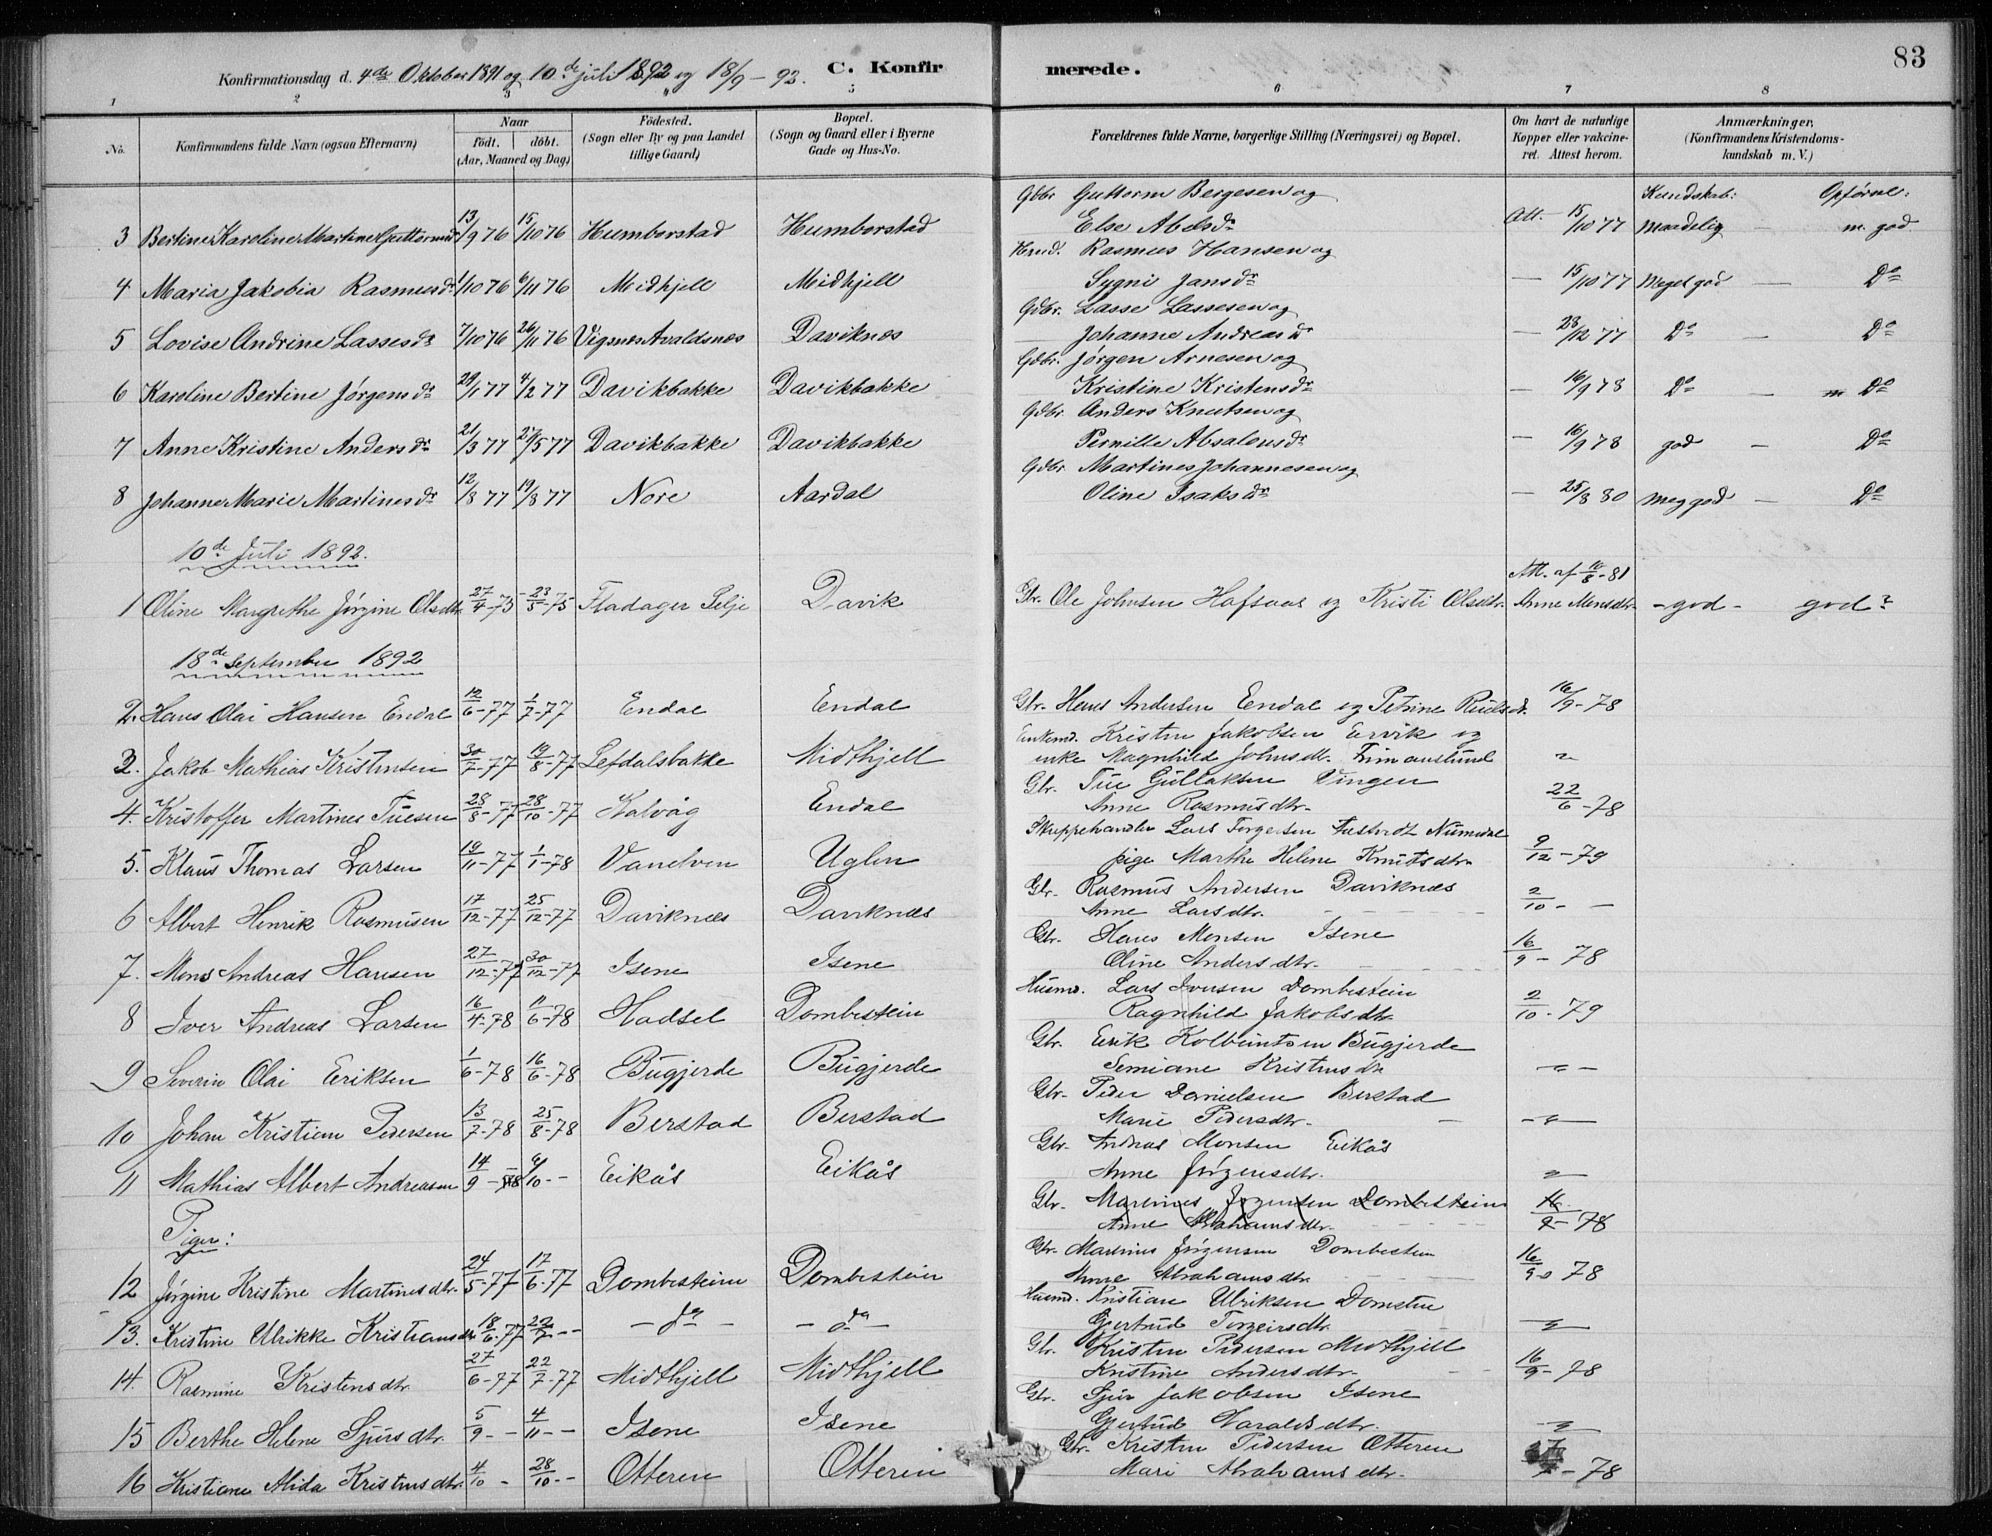 83
Konfirmationsdag d. 4de Oktober 1891 og 10de juli 1892 og 18/9 - 92. C. Konfirmerede.
1 2 3 4 5 6 7 8
No. Konfirmandens fulde Navn (ogsaa Efternavn) Naar født. døbt. (Aar, Maaned og Dag) Fødested. (Sogn eller By og paa Landet tillige Gaard) Bopæl. (Sogn og Gaard eller i Byerne Gade og Hus-No. Forældrenes fulde Navne, borgerlige Stilling (Næringsvei) og Bopæl. Om havt de naturlige Kopper eller vakcineret. Attest herom. Anmærkninger, (Konfirmandens Kristendomskundskab m. V.)
Kundskab: Opførsel:
3 Bertine Karoline Martine Guttormsdr 13/9 76 15/10 76 Humborstad Humborstad Gdbr Guttorm Bergesen og Else Abelsdr Att. 15/10 77 Maadelig — m. god
4 Maria Jakobia Rasmusdr 1/10 76 6/11 76 Midhjell Midhjell Husmd. Rasmus Hansen og Sygni Jansdr — 15/10 77 Meget god — Do
5 Lovise Andrine Lassesdr 7/10 76 26/11 76 Vigsnes Avaldsnes Daviknes Gdbr. Lasse Lassesen og Johanne Andreasdr — 28/12 77 Do Do
6 Karoline Bertine Jørgensdr 29/1 77 4/2 77 Davikbakke Davikbakke Gdbr. Jørgen Arnesen og Kristine Kristensdr — 16/9 78 Do — Do
7 Anne Kristine Andersdr 21/3 77 27/5 77 Davikbakke Davikbakke Gdbr. Anders Knutsen og Pernille Absalonsdr — 16/9 78 god — Do
8 Johanne Marie Martinesdr 12/8 77 19/8 77 Nore Aardal Gdbr Martines Johannesen og Oline Isaksdr — 25/8 80 Meg god — Do
10de Juli 1892.
1 Oline Margrethe Jørgine Olsdtr 27/4-75 23/5-75 Fladager Selje Davik Gbr. Ole Johnsen Hafsaas og Kristi Olsdtr. Att. af 10/8-81 Anne Monsdtr. - god - god?
18de September 1892
2. Hans Olai Hansen Endal 12/6-77 1/7-77 Endal Endal Gbr. Hans Andersen Endal og Petrine Rasdr. 16/9-78
3. Jakob Mathias Kristensen 30/7-77 19/8-77 Lefdalsbakke Midthjell Enkemd. Kristen Jakobsen Ervik og enke Magnhild Johnsdtr. Frimanslund "
4. Kristoffer Martines Tuesen 28/8-77 28/10-77 Kalvåg Endal Gbr. Tue Gullaksen Vingen Anne Rasmusdtr. 22/6-78
5. Klaus Thomas Larsen 19/11-77 1/1-78 Vanelven Uglen Skuppehandler Lars Torgersen Numedal pige Marthe Helene Knutsdtr 9/12-79
6 Albert Henrik Rasmusen 17/12-77 25/12-77 Daviknæs Daviknæs Gbr. Rasmus Andersen Daviknæs Anne Larsdtr. 2/10 - —
7. Mons Andreas Hansen 27/12-77 30/12-77 Isene Isene Gbr. Hans Monsen Isene Oline Andersdtr. 16/9-78
8 Iver Andreas Larsen 16/4-78 11/6-78 Hadsel Dombestein Husmd. Lars Iversen Dombestein Ragnhild Jakobsdtr. 2/10-79
9 Severin Olai Eriksen 1/6-78 16/6-78 Bugjerde Bugjerde Gbr. Erik Kolbeintsen Bugjerde Semiane Kristensdr — " —
10 Johan Kristian Pedersen 13/7-78 25/8-78 Berstad Berstad Gbr. Peder Danielsen Berstad Marie Pedersdtr. — " —
11 Mathias Albert Andreasen 14/9-78 6/10 - Eikås Eikås Gbr. Andreas Monsen Eikås Anne Jørgensdtr. "
Gbr. Martines Jørgensen Dombestein Anne Abrahamsdtr. 16/9-78
Piger:
12 Jørgine Kristine Martinesdtr. 24/5-77 17/6-77 Dombestein Dombestein Gbr. Martines Jørgensen Dombestein Anne Abrahamsdtr. 16/9-78
13. Kristine Ulrikke Kristiansdtr 18/6-77 22/7 - - — do — — do — Husmd. Kristian Ulriksen Domsten Gjertrud Torgeirsdtr. — " —
14. Rasmine Kristensdtr. 27/6-77 22/7-77 Midthjell Midthjell Gbr. Kristen Pedersen Midthjell Kristine Andersdtr. 16/9-78
15 Berthe Helene Sjursdtr. 5/9 - - 4/11 - - Isene Isene Gbr. Sjur Jakobsen Isene Gjertrud Haraldsdtr. — " —
16 Kristiane Alida Kristensdtr. 4/10 - 28/10 - - Otteren Otteren Gbr. Kristen Pedersen Otteren Mari Abrahamsdtr. - 78